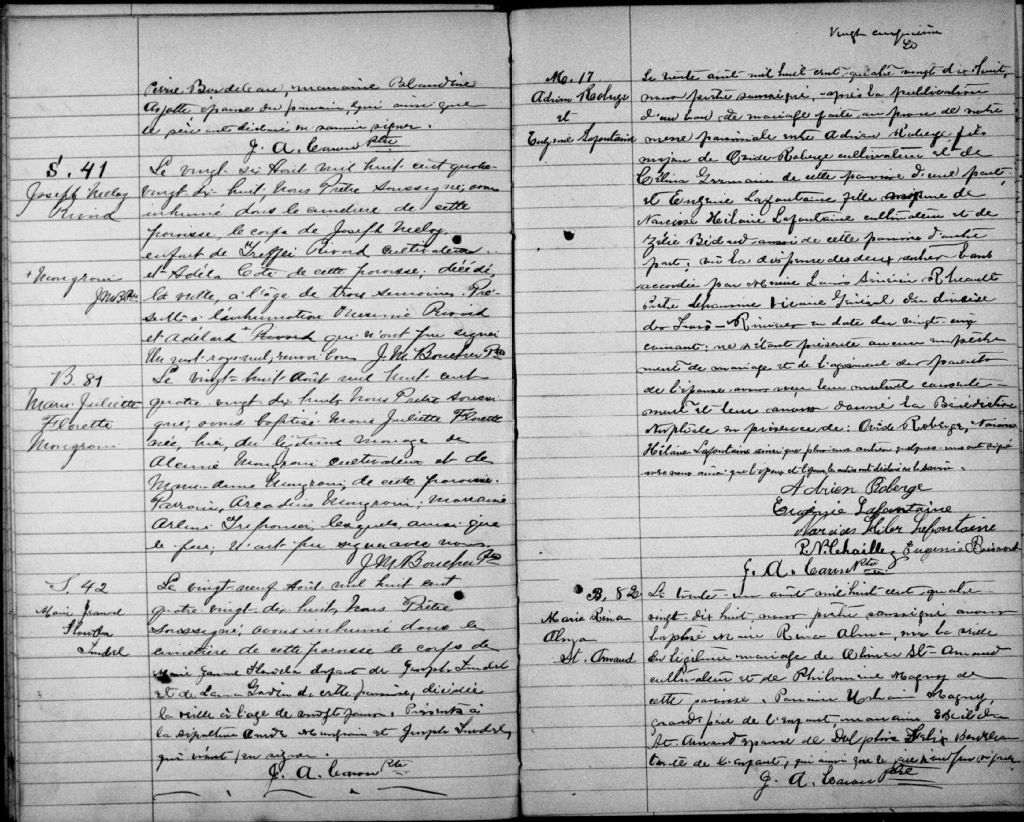 Pierre Bordeleau, marraine Blandine
Ayotte épouse du parrain, qui ainsi que
le père ont déclaré ne savoir signer.
J. A. Caron Ptre
S. 41
Joseph Meloy
Rivard
Le vingt-six Août mil huit cent quatre-
vingt dix huit, Nous Prêtre Soussigné, avons
inhumé dans le cimetière de cette
paroisse, le corps de Joseph Meloy
enfant de Trefflé Rivard cultivateur
et Adéla Côté de cette paroisse; décédé
la veille, à l'âge de trois semaines. Pré-
sents à l'inhumation Rivard
et Adélard Rivard qui n'ont pu signer
Un mot rayé nul, renvoi bon J. M. Boucher Ptre
+ Mongrain
J M B Ptre
B. 81
Marie Juliette
Florette
Mongrain
Le vingt-huit Août mil huit cent
quatre vingt dix huit, Nous Prêtre soussi-
gné, avons baptisé Marie Juliette Florette
née, hier, du légitime mariage de
Mongrain cultivateur et de
Marie-Anne Mongrain, de cette paroisse.
Parrain, Arcadius Mongrain; marraine
lesquels, ainsi que
le père, n'ont pu signer avec nous.
J. M. Boucher Ptre
S. 42
Marie Jeanne
Le vingt-neuf Août mil huit cent
quatre vingt dix huit, Nous Prêtre
Soussigné, avons inhumé dans le
cimetière de cette paroisse le corps de
Marie Jeanne enfant de Joseph
et de de cette paroisse, décédée
la veille à l'âge de vingt jours. Présents à
la sépulture Mongrain et Joseph
qui n'ont pu signer.
J. A. Caron Ptre
Vingt cinquième
M. 17
Adrien Roberge
et
Eugénie Lafontaine
Le trente août mil huit cent quatre vingt dix huit,
nous prêtre soussigné, après la publication
d'un ban de mariage faite au prône de notre
messe paroissiale entre Adrien Roberge fils
majeur de Ovide Roberge cultivateur et de
Célina Germain de cette paroisse d'une part;
et Eugénie Lafontaine fille mineure de
Narcisse Hilaire Lafontaine cultivateur et de
Zélie Bédard aussi de cette paroisse d'autre
part; vu la dispense des deux autres bans
accordée par Messire Louis Sévérin Rheault
Prêtre Vicaire Général du diocèse
des Trois-Rivières en date du vingt-cinq
courant; ne s'étant présenté aucun empêche-
ment de mariage et de l'agrément des parents
de l'épouse avons reçu leur mutuel consente-
ment et leur avons donné la Bénédiction
Nuptiale en présence de: Ovide Roberge, Narcisse
Hilaire Lafontaine ainsi que plusieurs autres quelques uns ont signé
avec nous ainsi que l'époux et l'épouse les autres ont déclaré ne le savoir.
Adrien Roberge
Eugénie Lafontaine
Narcisse Hiler Lafontaine
P. N. Chaillez Eugenie
J. A. Caron Ptre
B. 82
Marie Rina
Alma
St. Arnaud
Le trente un août mil huit cent quatre
vingt-dix huit, nous prêtre soussigné avons
baptisé Marie Rina Alma, née la veille
du légitime mariage de Olivier St-Arnaud
cultivateur et de Philomène Magny de
cette paroisse. Parrain Urbain Magny,
grand père de l'enfant, marraine
St-Arnaud épouse de Delphis Bordeleau
tante de l'enfant, qui ainsi que le père n'ont pu signer.
J. A. Caron Ptre